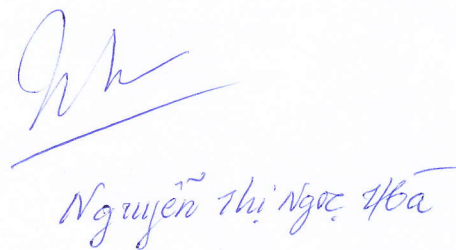 Nguyễn Thị Ngọc Hoà